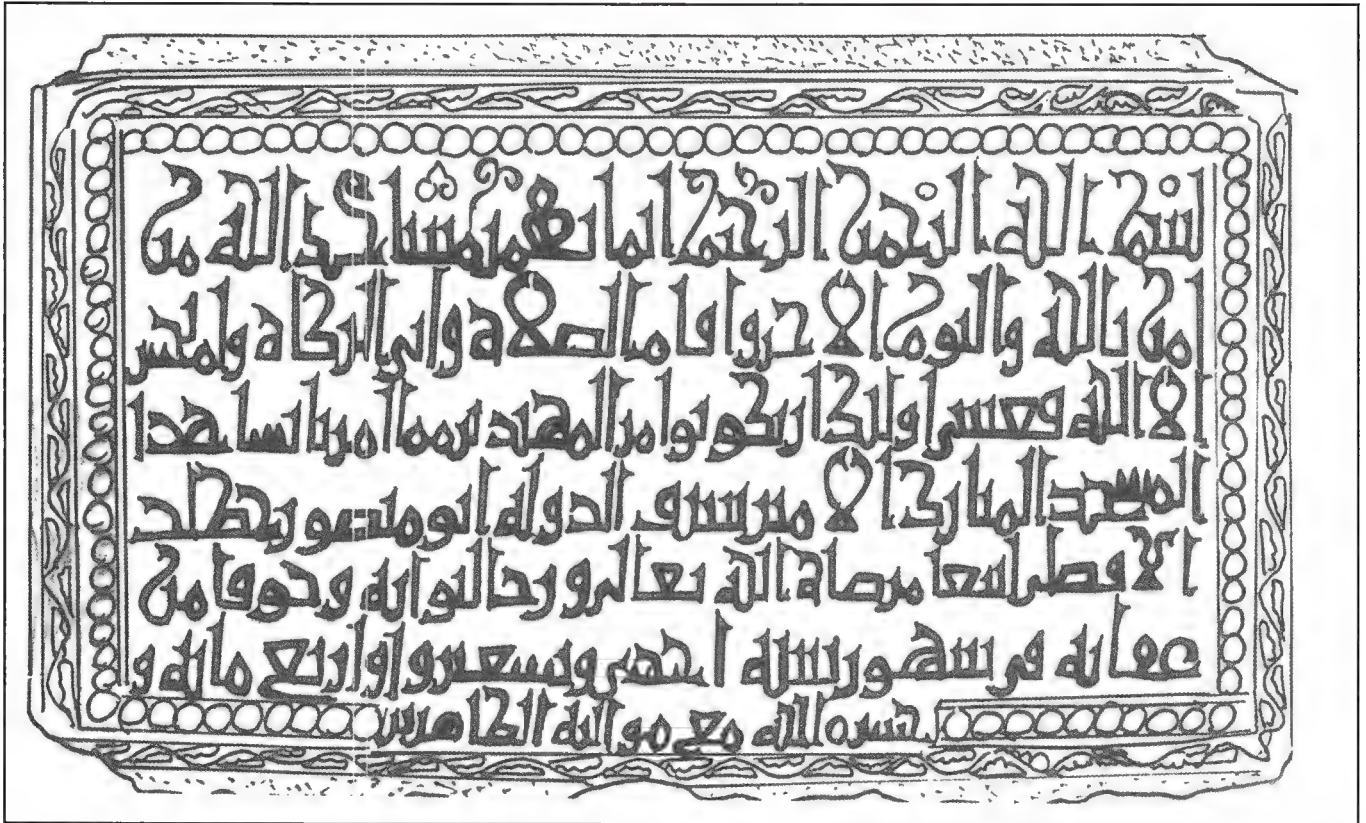 بسم الله الرحمن الرحيم انما يعمر مساجد الله من
امن بالله واليوم الاخر واقام الصلاة واتى الزكاة ولم يخش
الا الله فعسى اولئك ان يكونوا من المهتدين مما امر بانشا هذا
المسجد المبارك الامير شرف الدولة ابو منصور خطلخ
الافضلي ابتغا مرضاة الله تعالى ورجا لثوابه وخوفا من
عقابه في شهور سنة وتسعين واربع مائة و
حشره الله مع مواليه الطاهرين